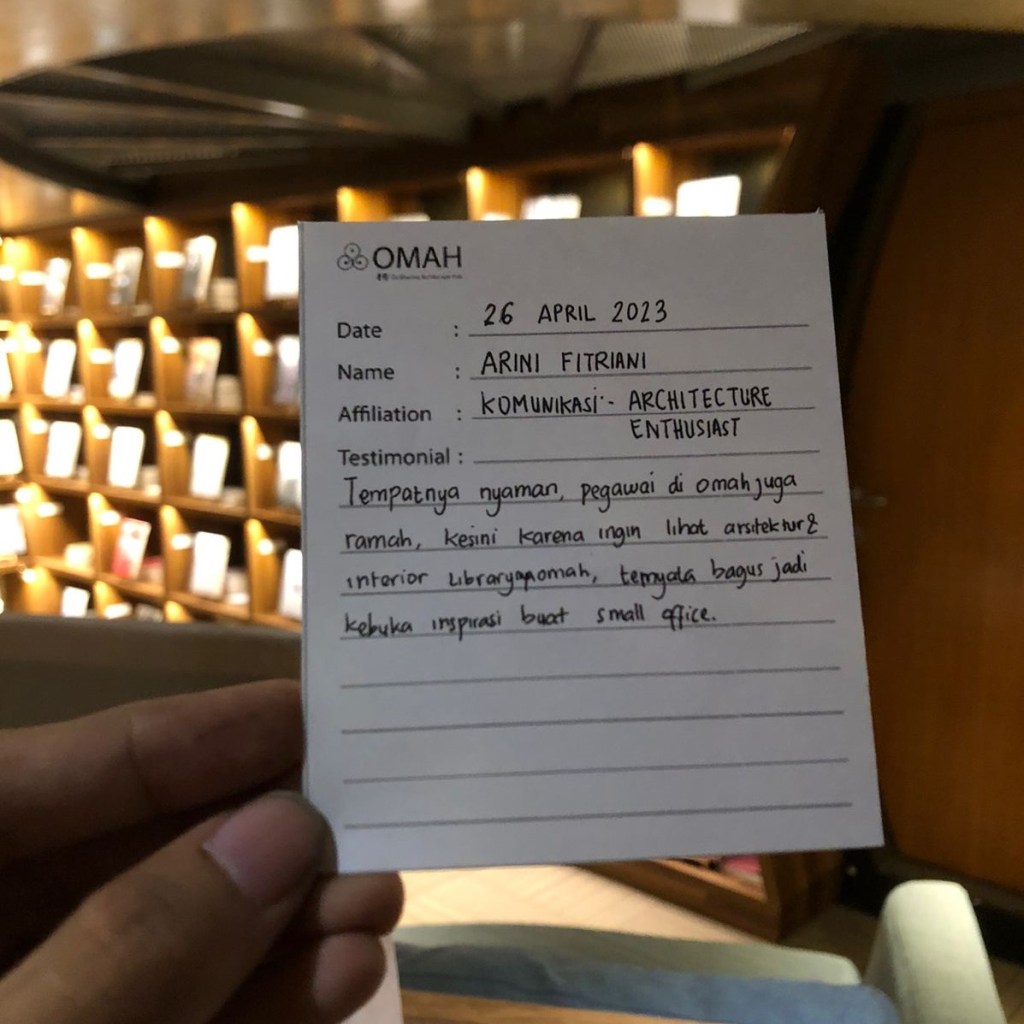 OMAH
Date : 26 APRIL 2023
Name : ARINI FITRIANI
Affiliation : KOMUNIKASI - ARCHITECTURE
ENTHUSIAST
Testimonial :
Tempatnya nyaman, pegawai di omah juga
ramah, kesini karena ingin lihat arsitektur &
interior library omah, ternyata bagus jadi
kebuka inspirasi buat small office.